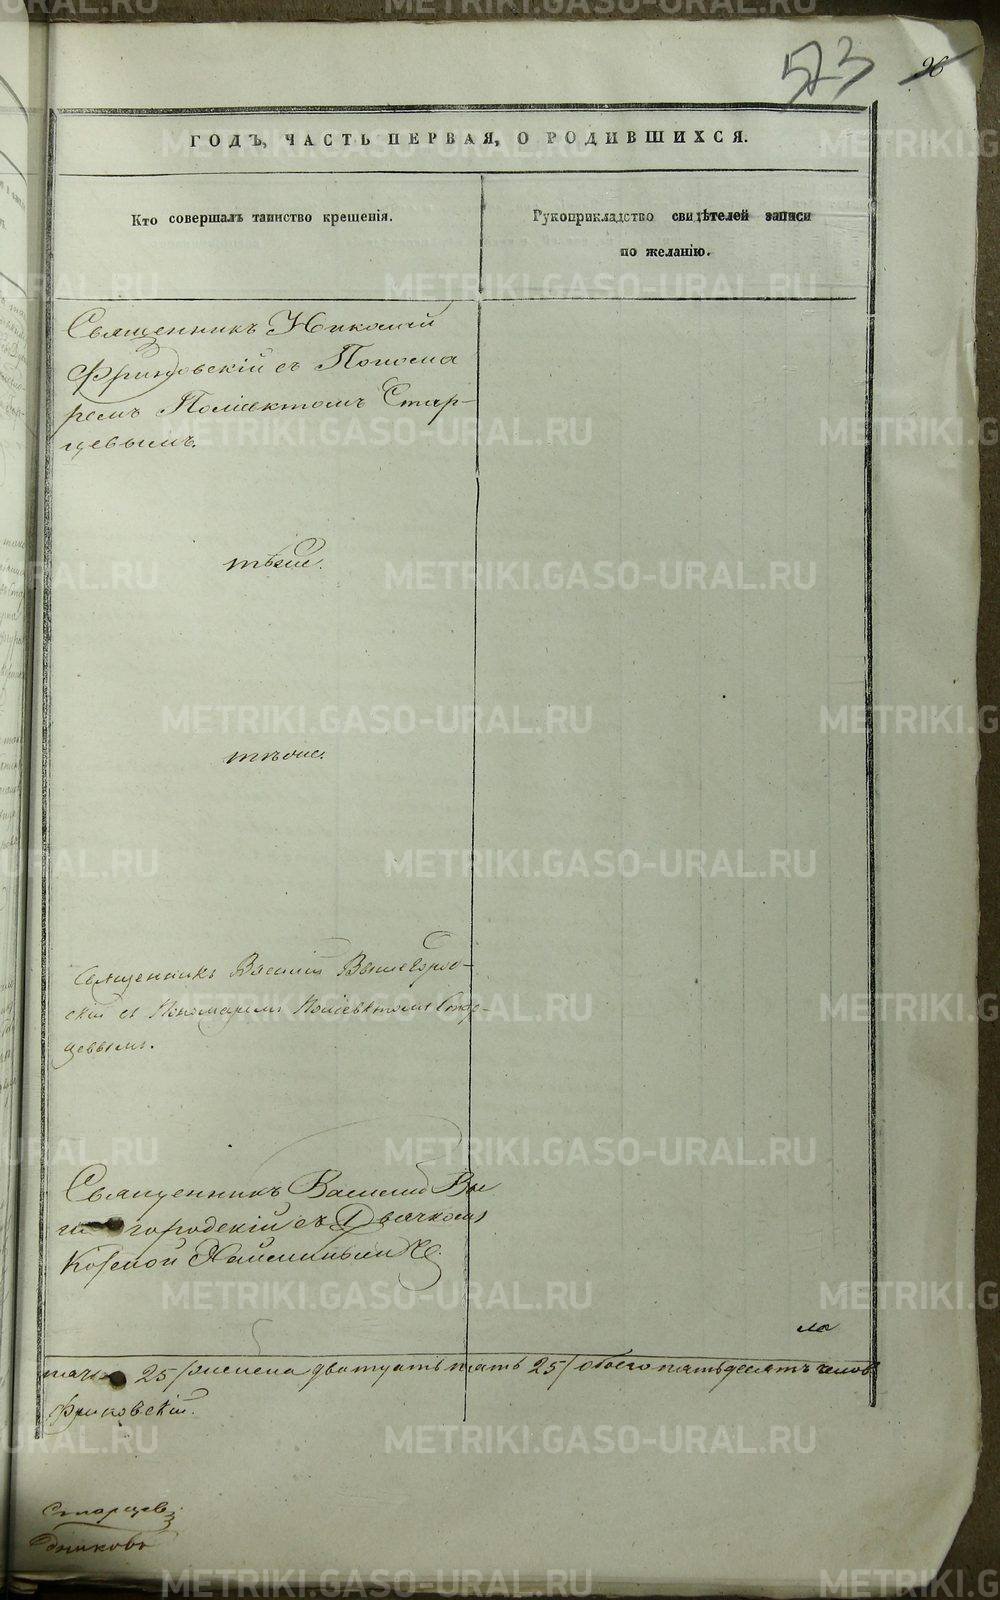 573 96
ГОДЪ, ЧАСТЬ ПЕРВАЯ, О РОДИВШИХСЯ.
Кто совершалъ таинство крещенія.
Рукоприкладство свидѣтелей записи
по желанію.
Священникъ Николай
Фриновскій съ Понома
ремъ Поліектомъ Стар-
цевымъ.
тѣже.
тѣже.
Священникъ Василій Вышегород-
скій съ Пономаремъ Поліектомъ Стар-
цевымъ.
Священникъ Василій Вы
городскій съ Дьячкомъ
Козмой
25/ женска дватцать пять 25/ обоего пятьдесятъ челов
Старцев
METRIKI.GASO-URAL.RU